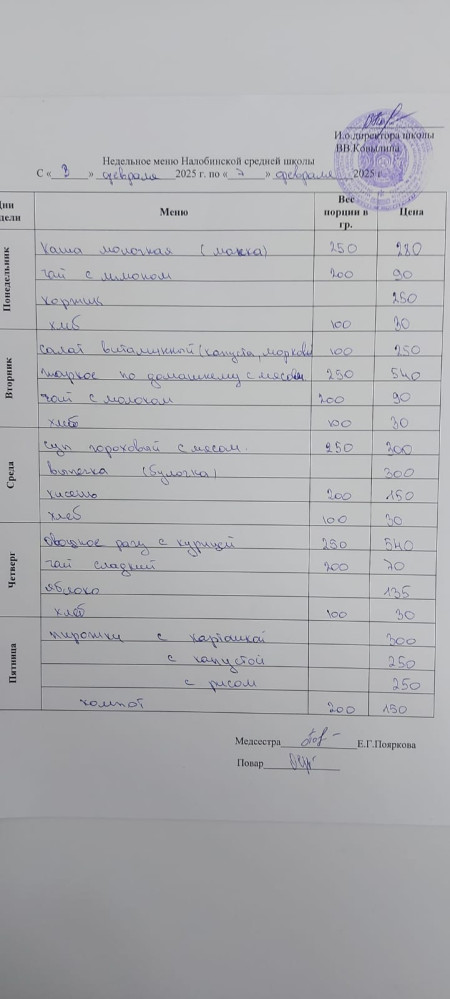 И.о.директора школы
ВВ.Ковылина
Недельное меню Налобинской средней школы
С « 3 » февраля 2025 г. по « 7 » февраля 2025 г.
Дни недели Меню Вес порции в гр. Цена
Понедельник
Каша молочная (манка) 250 220
чай с лимоном 200 90
коржик 250
хлеб 100 30
Вторник
салат витаминный (капуста, морковь 100 250
жаркое по домашнему с мясом 250 540
чай с молоком 200 90
хлеб 100 30
Среда
суп гороховый с мясом. 250 300
выпечка (булочка) 300
кисель 200 150
хлеб 100 30
Четверг
овощное рагу с курицей 250 540
чай сладкий 200 70
яблоко 135
хлеб 100 30
Пятница
пирожки с картошкой 300
с капустой 250
с рисом 250
компот 200 150
Медсестра Е.Г.Пояркова
Повар